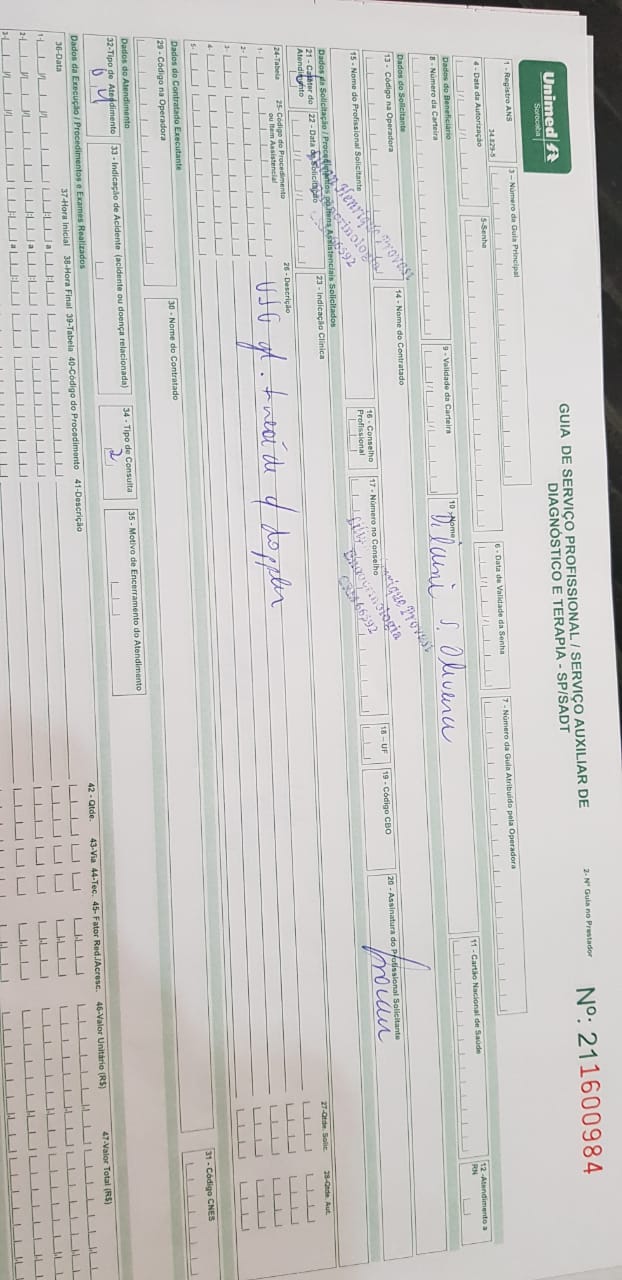 Unimed
Sorocaba
GUIA DE SERVIÇO PROFISSIONAL / SERVIÇO AUXILIAR DE
DIAGNÓSTICO E TERAPIA - SP/SADT
2- Nº Guia no Prestador
Nº: 211600984
1 - Registro ANS
34.829-5
3 – Número da Guia Principal
4 - Data da Autorização
5-Senha
6 - Data de Validade da Senha
7 - Número da Guia Atribuído pela Operadora
Dados do Beneficiário
8 - Número da Carteira
9 - Validade da Carteira
10 - Nome
S. Oliveira
11 - Cartão Nacional de Saúde
12 -Atendimento a
RN
Dados do Solicitante
13 - Código na Operadora
14 - Nome do Contratado
15 - Nome do Profissional Solicitante
16 - Conselho
Profissional
17 - Número no Conselho
18 – UF
19 - Código CBO
20 - Assinatura do Profissional Solicitante
Henrique
Endocrinologia
Dados da Solicitação / Procedimentos ou Itens Assistenciais Solicitados
21 - Caráter do
Atendimento
22 - Data da Solicitação
23 - Indicação Clínica
24-Tabela
25-Código do Procedimento
ou Item Assistencial
26 - Descrição
27-Qtde. Solic.
28-Qtde. Aut.
1-
USG gl. tireóide c/ doppler
2-
3-
4-
5-
Dados do Contratado Executante
29 - Código na Operadora
30 - Nome do Contratado
31 - Código CNES
Dados do Atendimento
32-Tipo de Atendimento
04
33 - Indicação de Acidente (acidente ou doença relacionada)
34 - Tipo de Consulta
2
35 - Motivo de Encerramento do Atendimento
Dados da Execução / Procedimentos e Exames Realizados
36-Data
37-Hora Inicial
38-Hora Final
39-Tabela
40-Código do Procedimento
41-Descrição
42 - Qtde.
43-Via
44-Tec.
45- Fator Red./Acresc.
46-Valor Unitário (R$)
47-Valor Total (R$)
1-
2-
3-